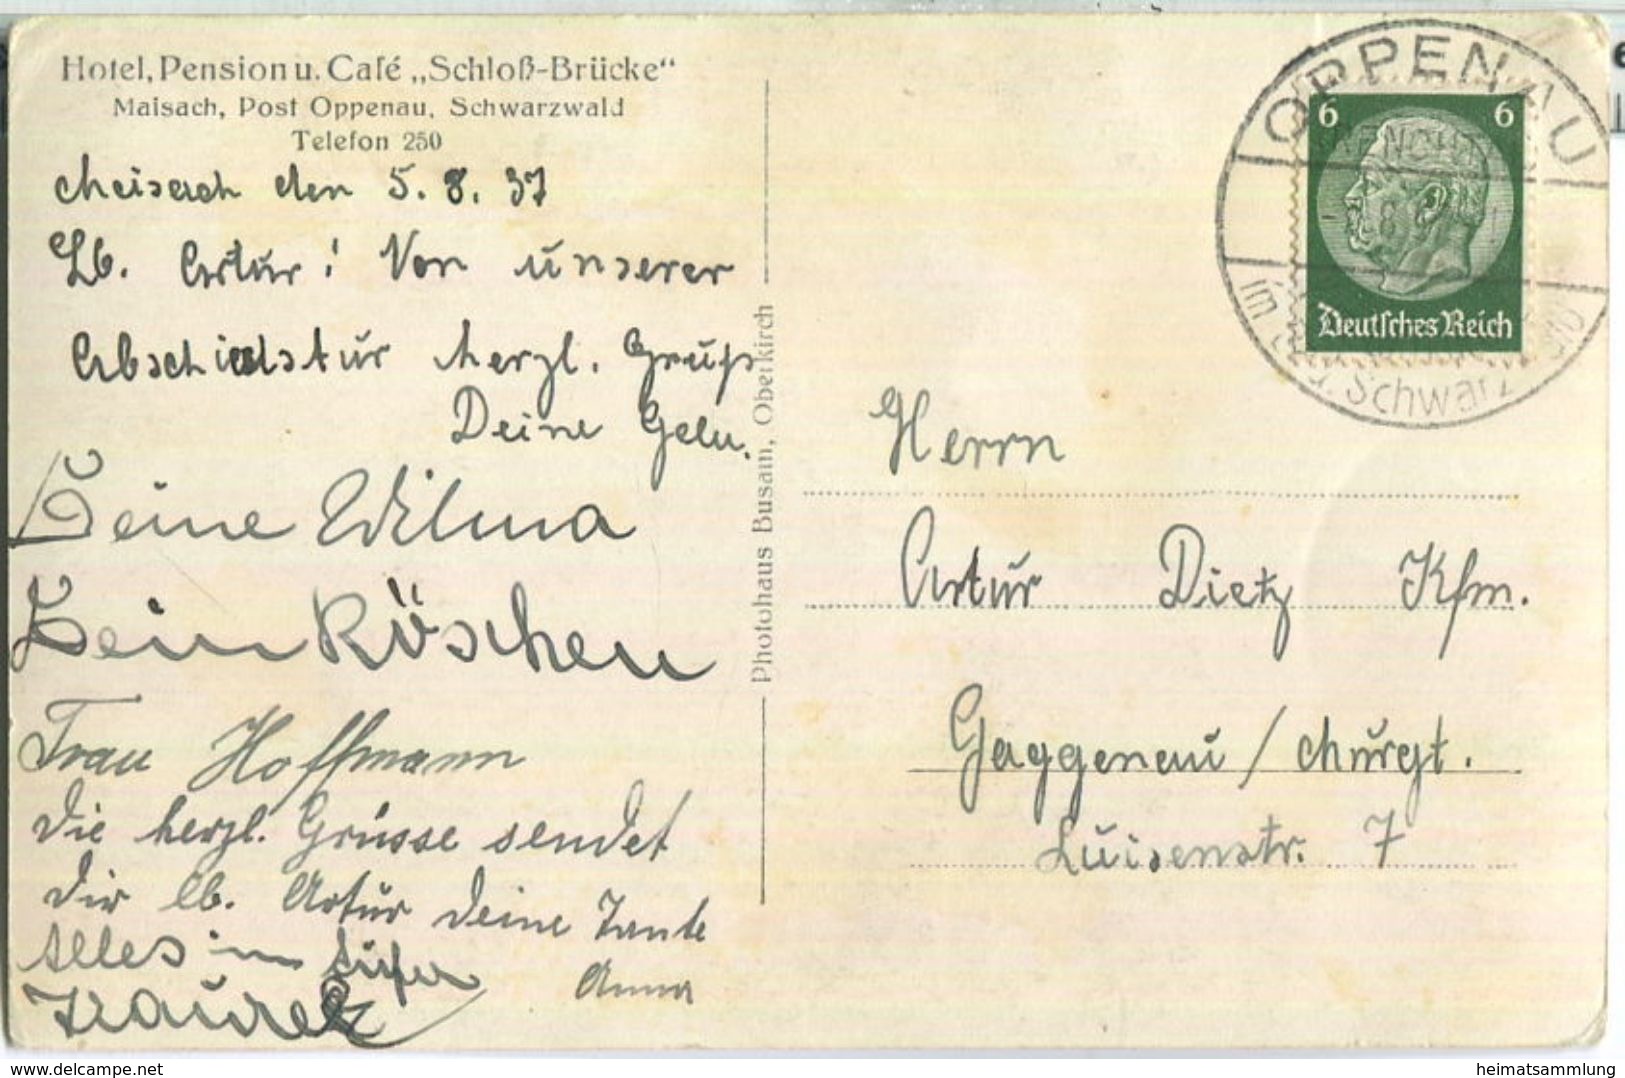 Hotel, Pension u. Café „Schloß-Brücke“
Maisach, Post Oppenau, Schwarzwald
Telefon 250
Meisach den 5. 8. 37
Lb. Artur! Von unserer
Abschiedstur herzl. Gruß
Deine
Deine Wilma
Dein Röschen
Frau Hoffmann
Die herzl. Grüsse sendet
Dir lb. Artur Deine Tante
Anna
Alles in tiefer
Photohaus Busam, Oberkirch
OPPENAU
RENCHT
im
Schwarz
6 6
Deutsches Reich
Herrn
Artur Dietz Kfm.
Gaggenau / Murgt.
Luisenstr. 7
www.delcampe.net
heimatsammlung